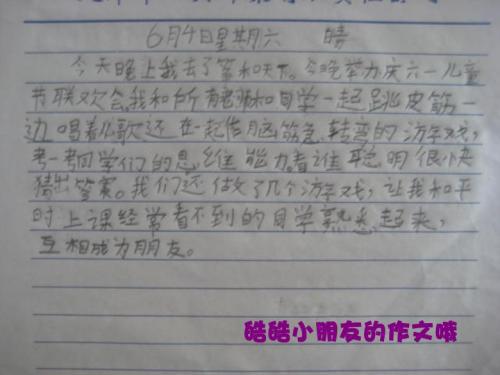 6月4日星期六 晴
今天晚上我去了笨和天下。今晚举力庆六一儿童
节联欢会,我和所有老师和同学一起跳皮筋一
边唱着儿歌还在一起作脑筋急转弯的游戏,
考一考同学们的思维能力,看谁聪明很快
猜出答案。我们还做了几个游戏,让我和平
时上课经常看不到的同学熟悉起来,
互相成为朋友。
酷酷小朋友的作文哦